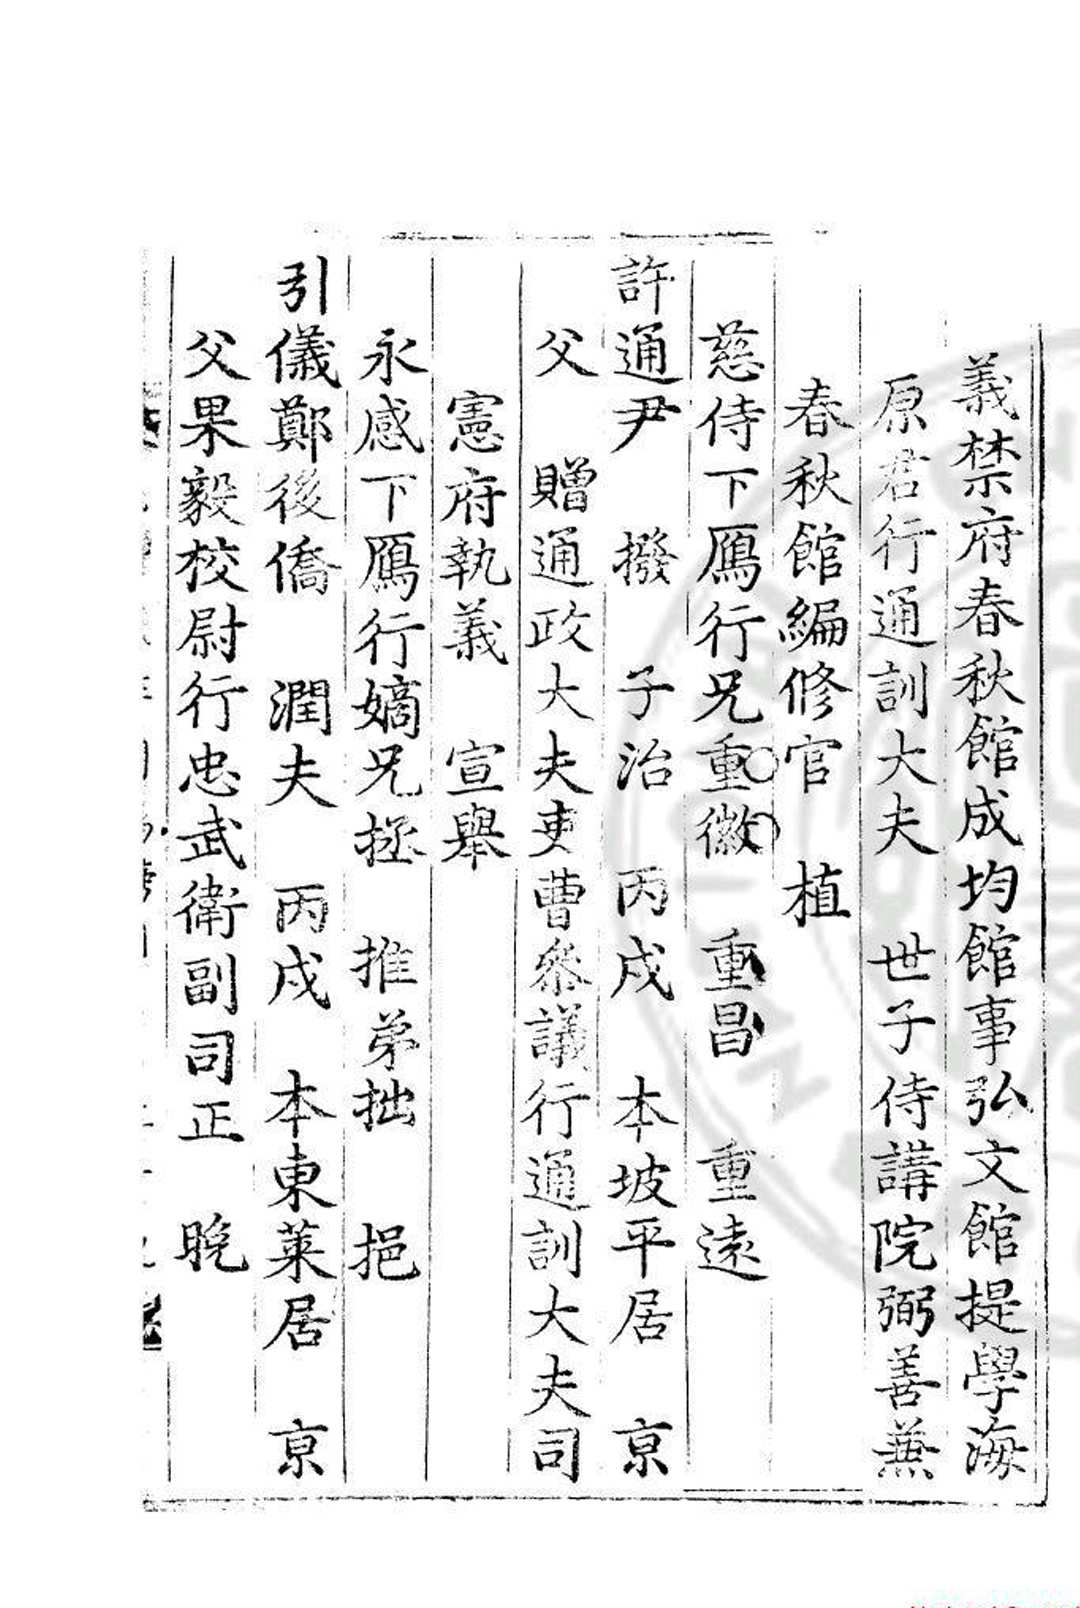 義禁府春秋館成均館事弘文館提學海
原君行通訓大夫 世子侍講院弼善兼
春秋館編修官 植
慈侍下鴈行兄重徽 重昌 重遠
許通尹 撥 子治 丙戌 本坡平居 京
父 贈通政大夫吏曹參議行通訓大夫司
憲府執義 宣擧
永感下鴈行嫡兄拯 推弟拙 挹
引儀鄭後僑 潤夫 丙戌 本東萊居 京
父果毅校尉行忠武衛副司正 晩